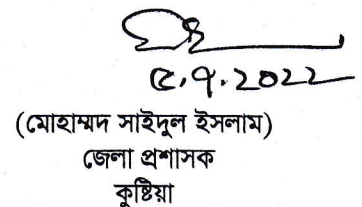 ৫.৭.2022
(মোহাম্মদ সাইদুল ইসলাম)
জেলা প্রশাসক
কুষ্টিয়া